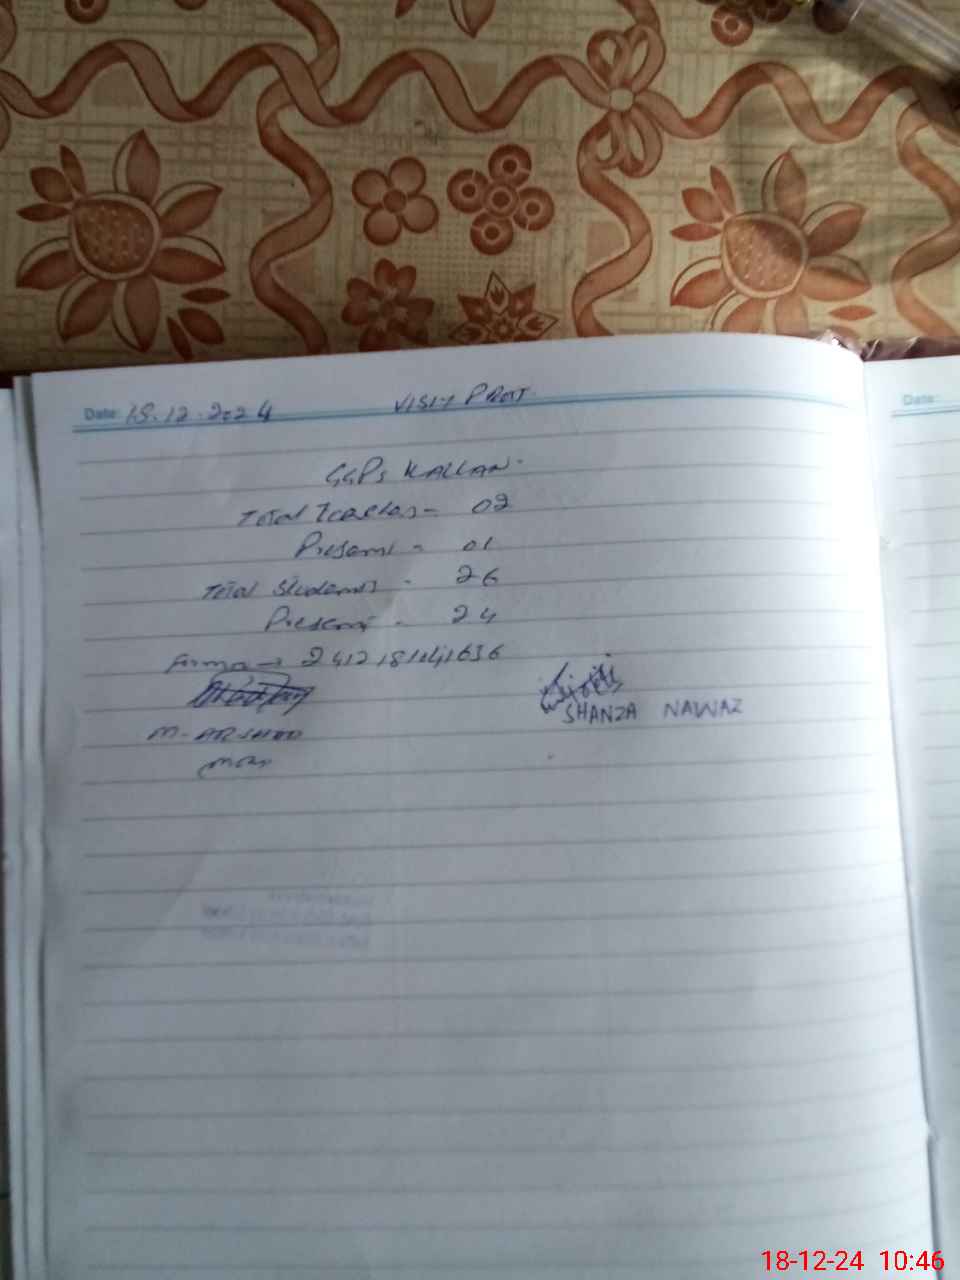 Date: 18.12.2024 VISIT PROFF
Date:
GGPS KALLAN.
Total Teachers - 02
Present - 01
Total Students - 26
Present - 24
SHANZA NAWAZ
M. ARSHAD
18-12-24 10:46